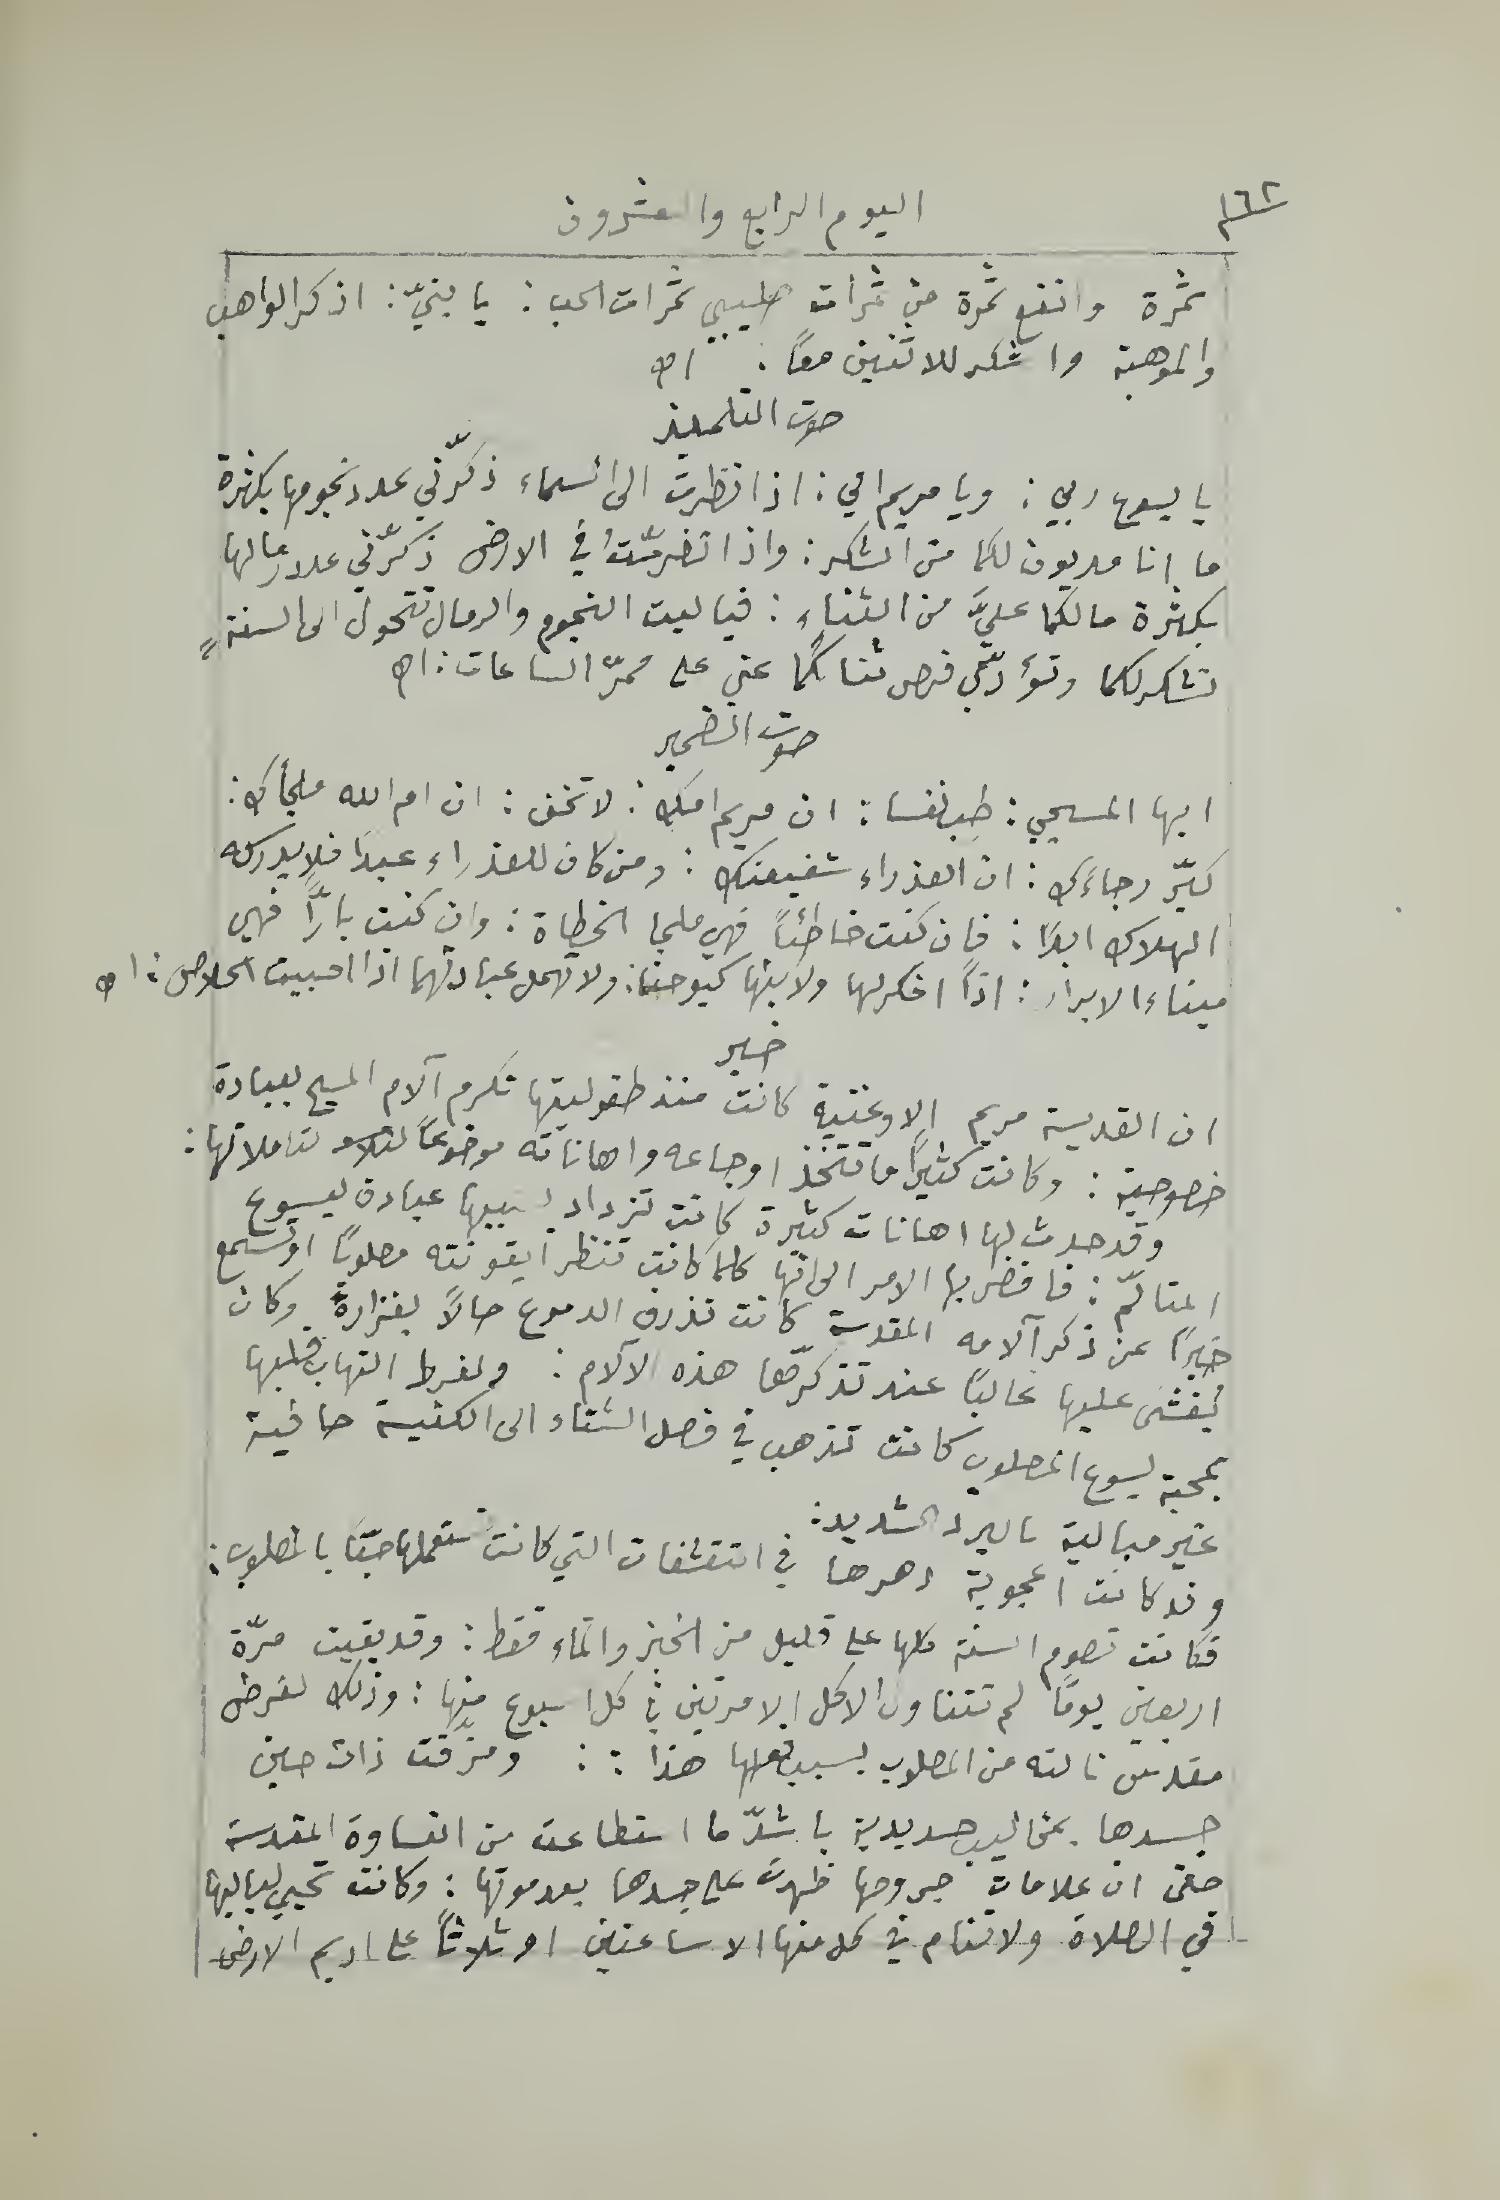 ١٦٢
اليوم الرابع والعشرون
ثمرة وانفع ثمرة من ثمرات صليبي ثمرات الحب : يا بنيّ : اذكر الواهب
والموهبة واشكر للاثنين معًا : اه
صوت التلميذ
يا يسوع ربي : ويا مريم امي : اذا نظرت الى السماء ذكّرني عدد نجومها بكثرة
ما انا مديون لكما من الشكر : واذا تفرستُ في الارض ذكّرني عدد رمالها
بكثرة ما لكما عليَّ من الثناء : فيا ليت النجوم والرمال تتحول الى السنة
تشكر لكما وتؤدّي فرض ثنائكما عني على ممرّ الساعات : اه
صوت الضمير
ايها المسيحي : طب نفسا : ان مريم امك : لا تخف : ان ام الله ملجأك :
كبّر رجاءك : ان العذراء شفيعتك : ومن كان للعذراء عبدًا فلا يدركه
الهلاك ابدًا : فان كنت خاطئًا فهي ملجا الخطاة : وان كنت بارًّا فهي
ميناء الابرار : اذًا اشكر لها ولابنها كيوحنا : ولا تهمل عبادتهما اذا احببت الخلاص : اه
خبر
ان القديسة مريم الاوغنية كانت منذ طفوليتها تكرم آلام المسيح بعبادة
خصوصية : وكانت كثيرًا ما تتخذ اوجاعه واهاناته موضوعًا لتاملاتها :
وقد حدث لها اهانات كثيرة كانت تزداد بسببها عبادة ليسوع
المتالّم : فافضى بها الامر الى انها كلما كانت تنظر ايقونته مصلوبًا او تسمع
خبرًا عن ذكر آلامه المقدسة كانت تذرف الدموع حالًا بغزارة وكان
يُغشى عليها غالبًا عند تذكّرها هذه الآلام : ولفرط التهاب قلبها
بمحبة يسوع المصلوب كانت تذهب في فصل الشتاء الى الكنيسة حافية
غير مبالية بالبرد الشديد :
وقد كانت اعجوبة دهرها في التقشفات التي كانت تستعملها حبًّا بالمصلوب :
فكانت تصوم السنة كلها على قليل من الخبز والماء فقط : وقد بقيت مرّة
اربعين يومًا لم تتناول الاكل الا مرتين في كل اسبوع منها : وذلك لغرض
مقدس نالته من المصلوب بسبب فعلها هذا : : ومزّقت ذات حين
جسدها بمخاليب حديدية باشدّ ما استطاعت من القساوة المقدسة
حتى ان علامات جروحها ظهرت على جسدها بعد موتها : وكانت تحيي لياليها
في الصلاة ولا تنام في كل منها الا ساعتين او ثلاثًا على اديم الارض